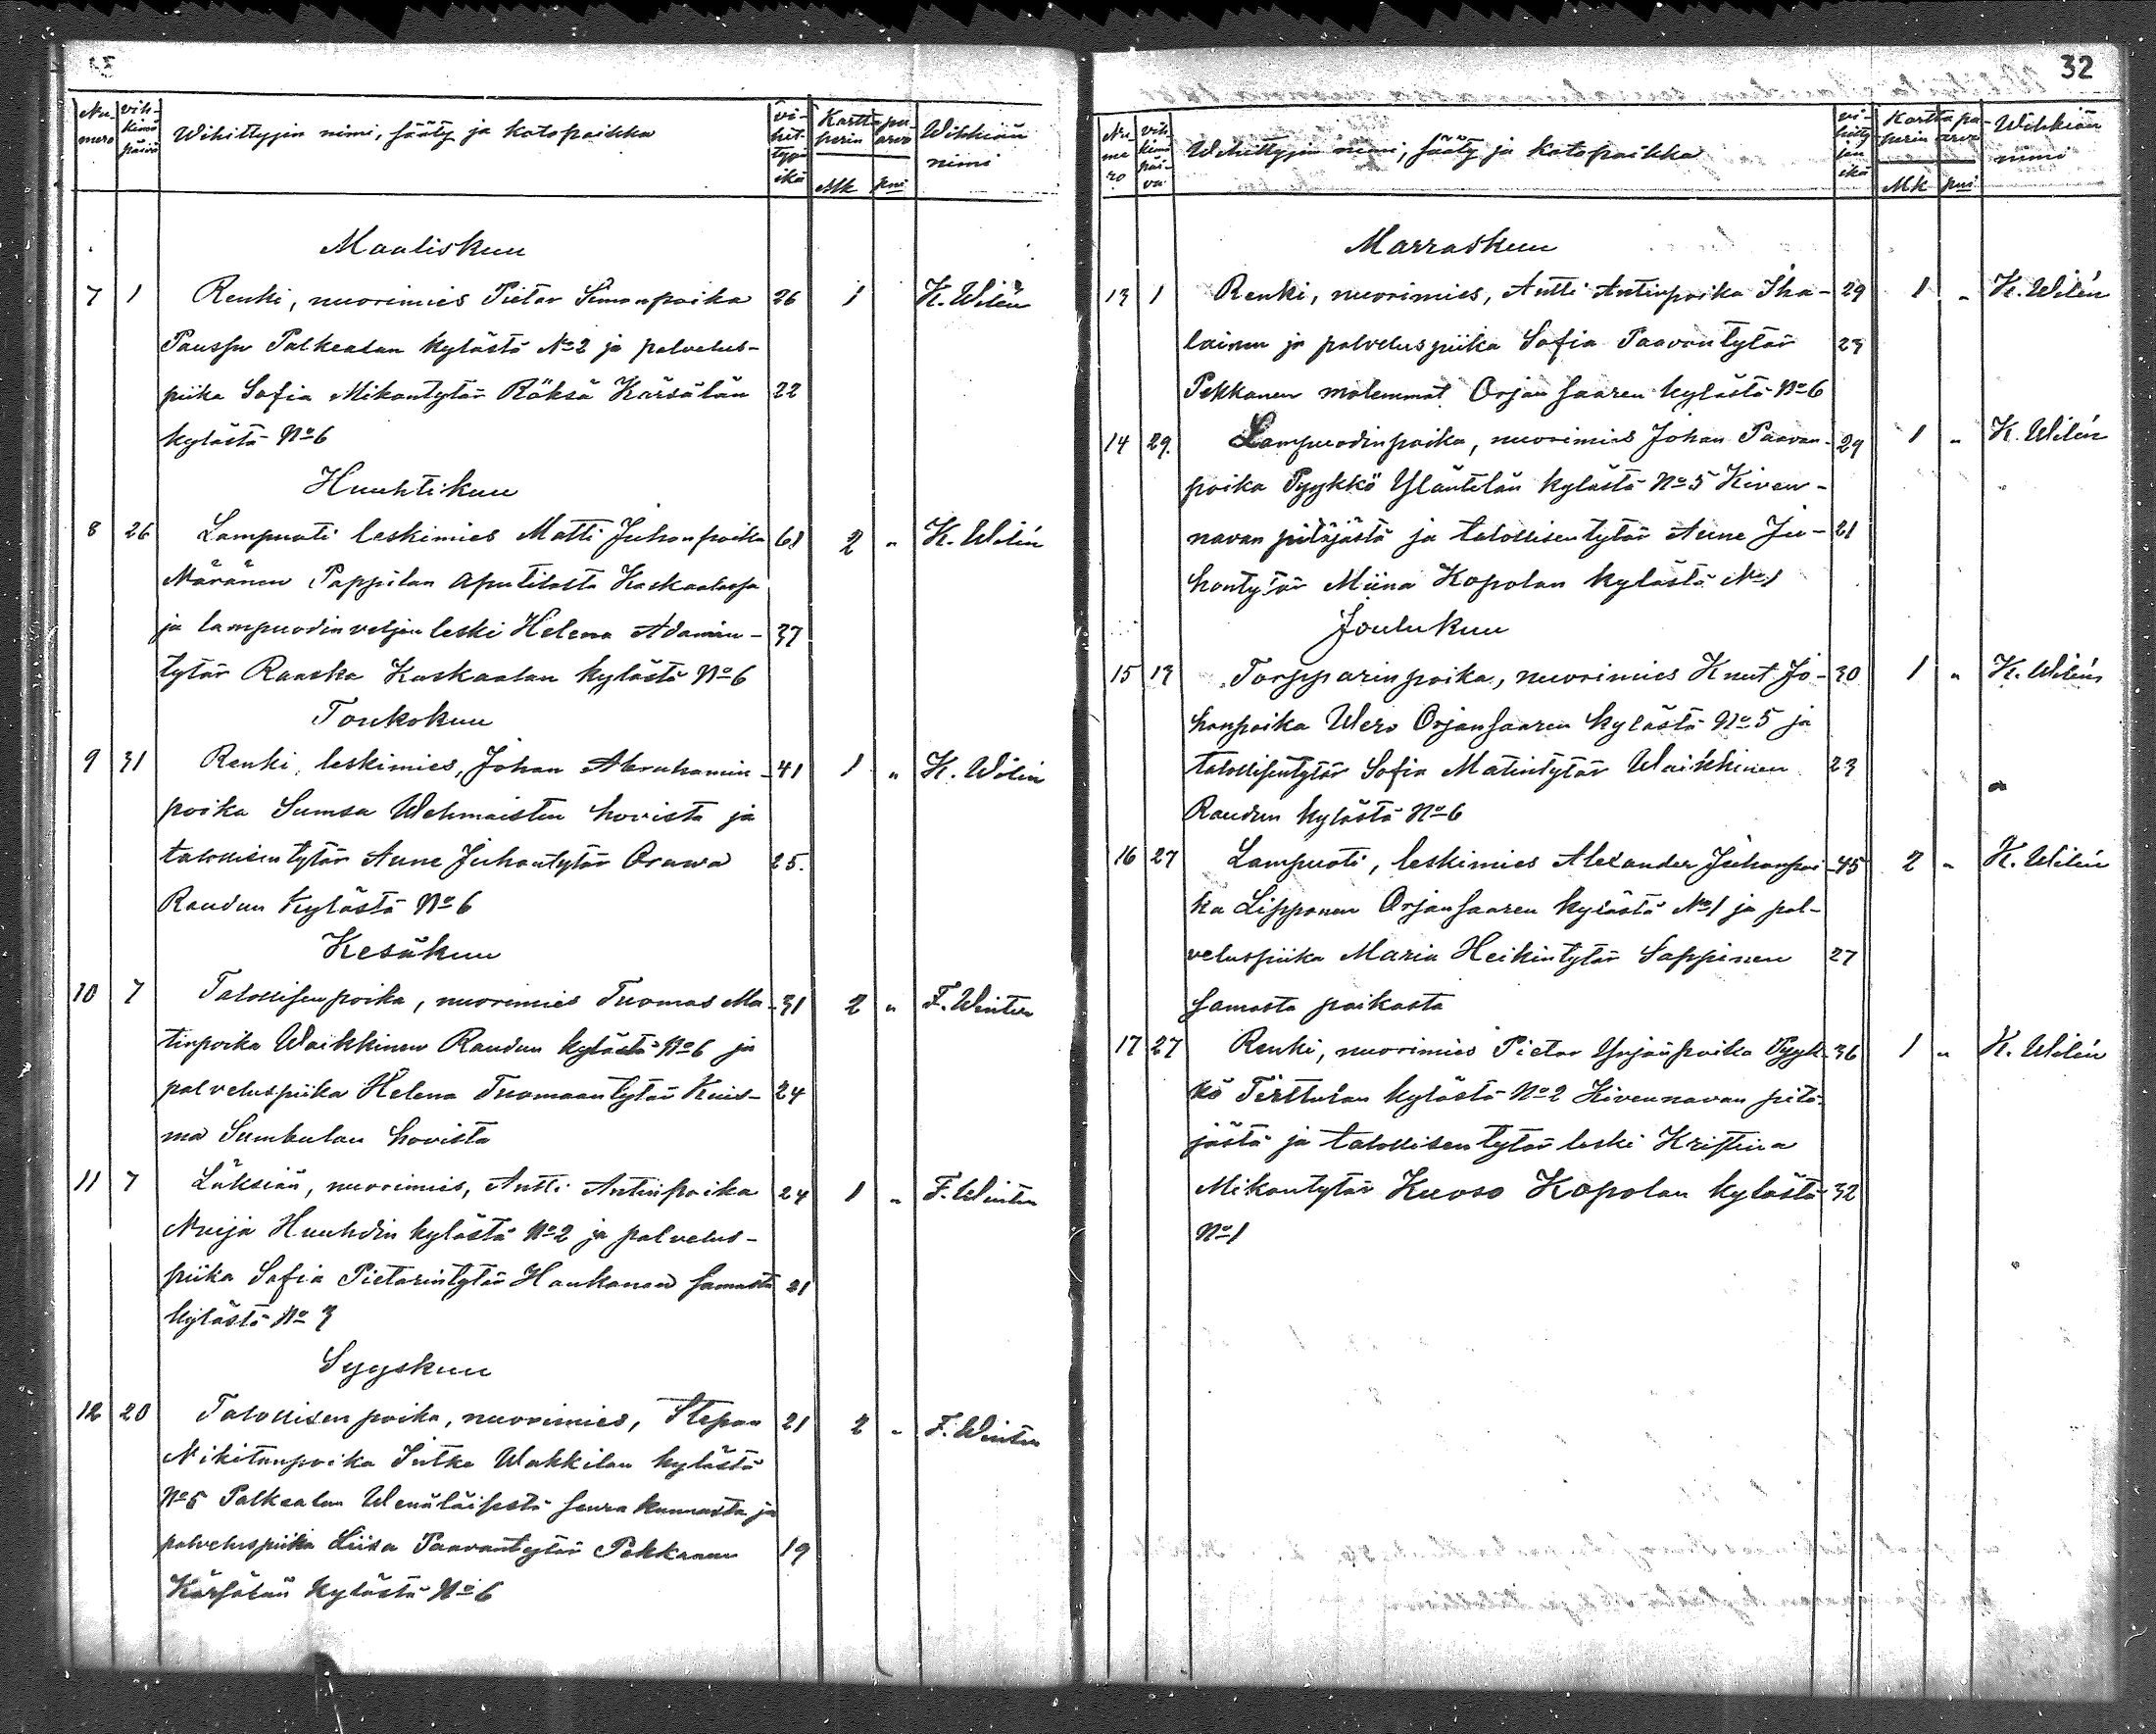 31
Nu- mero
vih- kimä päivä
Wihittyjin nimi, sääty ja kotopaikka
vi- hit- tyjin ikä
Kartta pa- perin arvo
Mk pni
Wihkiän nimi
Maaliskuu
7 1 Renki, nuorimies Pietar Simonpoika 26 1 K. Wilén
Paussu Palkealan kylästä No 2 ja palvelus-
piika Sofia Mikontytär Räksä Kärsälän 22
kylästä No 6
Huuhtikuu
8 26 Lampuoti leskimies Matti Juhonpoika 61 2 " K. Wilén
Märänen Pappilan aputilasta Kaskaalassa
ja lampuodin veljen leski Helena Adamin- 37
tytär Raaska Kaskaalan kylästä No 6
Toukokuu
9 31 Renki, leskimies, Johan Abrahamin- 41 1 " K. Wilén
poika Sumsa Wehmaisten hovista ja
talollisentytär Anne Juhontytär Orawa 25.
Raudun kylästä No 6
Kesäkuu
10 7 Talollisenpoika, nuorimies Tuomas Ma- 31 2 " F. Winter
tinpoika Waikkinen Raudun kylästä No 6 ja
palveluspiika Helena Tuomaantytär Kuis- 24
ma Sumbulan hovista
11 7 Läksiän, nuorimies, Antti Antinpoika 24 1 " F. Winter
Nuija Huuhdin kylästä No 2 ja palvelus-
piika Sofia Pietarintytär Haukanen samasta 21
kylästä No 3
Syyskuu
12 20 Talollisen poika, nuorimies, Stepan 21 2 " F. Winter
Nikitanpoika Jutka Wakkilan kylästä
No 5 Palkealan Wenäläisestä seurakunnasta ja
palveluspiika Liisa Paavontytär Pekkanen 19
Kärsälän kylästä No 6
32
Nu- me ro
vih- kimä päi- vä
Wihittyjin nimi, sääty ja kotopaikka
vi- hitty jän ikä
Kartta pa- perin arvo
Mk pni
Wihkiän nimi
Marraskuu
13 1 Renki, nuorimies, Antti Antinpoika Iha- 29 1 " K. Wilén
lainen ja palveluspiika Sofia Paavontytär 23
Pekkanen molemmat Orjansaaren kylästä No 6
14 29. Lampuodinpoika, nuorimies Johan Paavon- 29 1 " K. Wilén
poika Pyykkö Yläntelän kylästä No 5 Kiven-
navan pitäjästä ja talollisentytär Anne Ju- 21
hontytär Miina Kopolan kylästä No 1
Joulukuu
15 13 Torpparinpoika, nuorimies Knut Jo- 30 1 " K. Wilén
hanpoika Wero Orjansaaren kylästä No 5 ja
talollisentytär Sofia Matintytär Waikkinen 23
Raudun kylästä No 6
16 27 Lampuoti, leskimies Alexander Juhonpoi- 45 2 " K. Wilén
ka Lipponen Orjansaaren kylästä No 1 ja pal-
veluspiika Maria Heikintytär Sappinen 27
samasta paikasta
17 27 Renki, nuorimies Pietar Yrjönpoika Pyyk- 36 1 " K. Wilén
kö Terttulan kylästä No 2 Kivennavan pitä-
jästä ja talollisentytär leski Kristina
Mikontytär Kuoso Kopolan kylästä 32
No 1